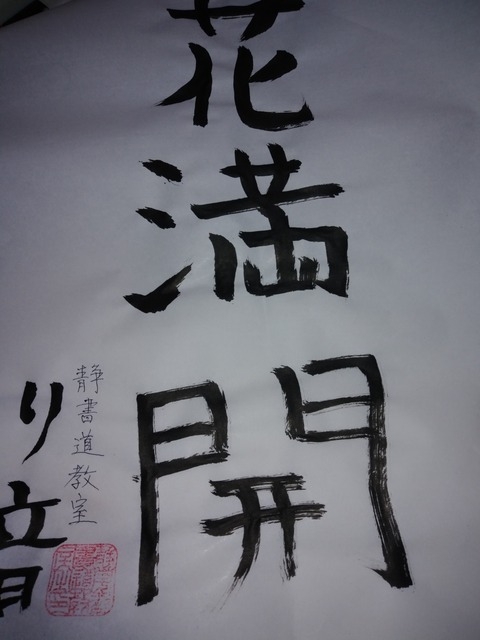 花満開
静書道教室
り